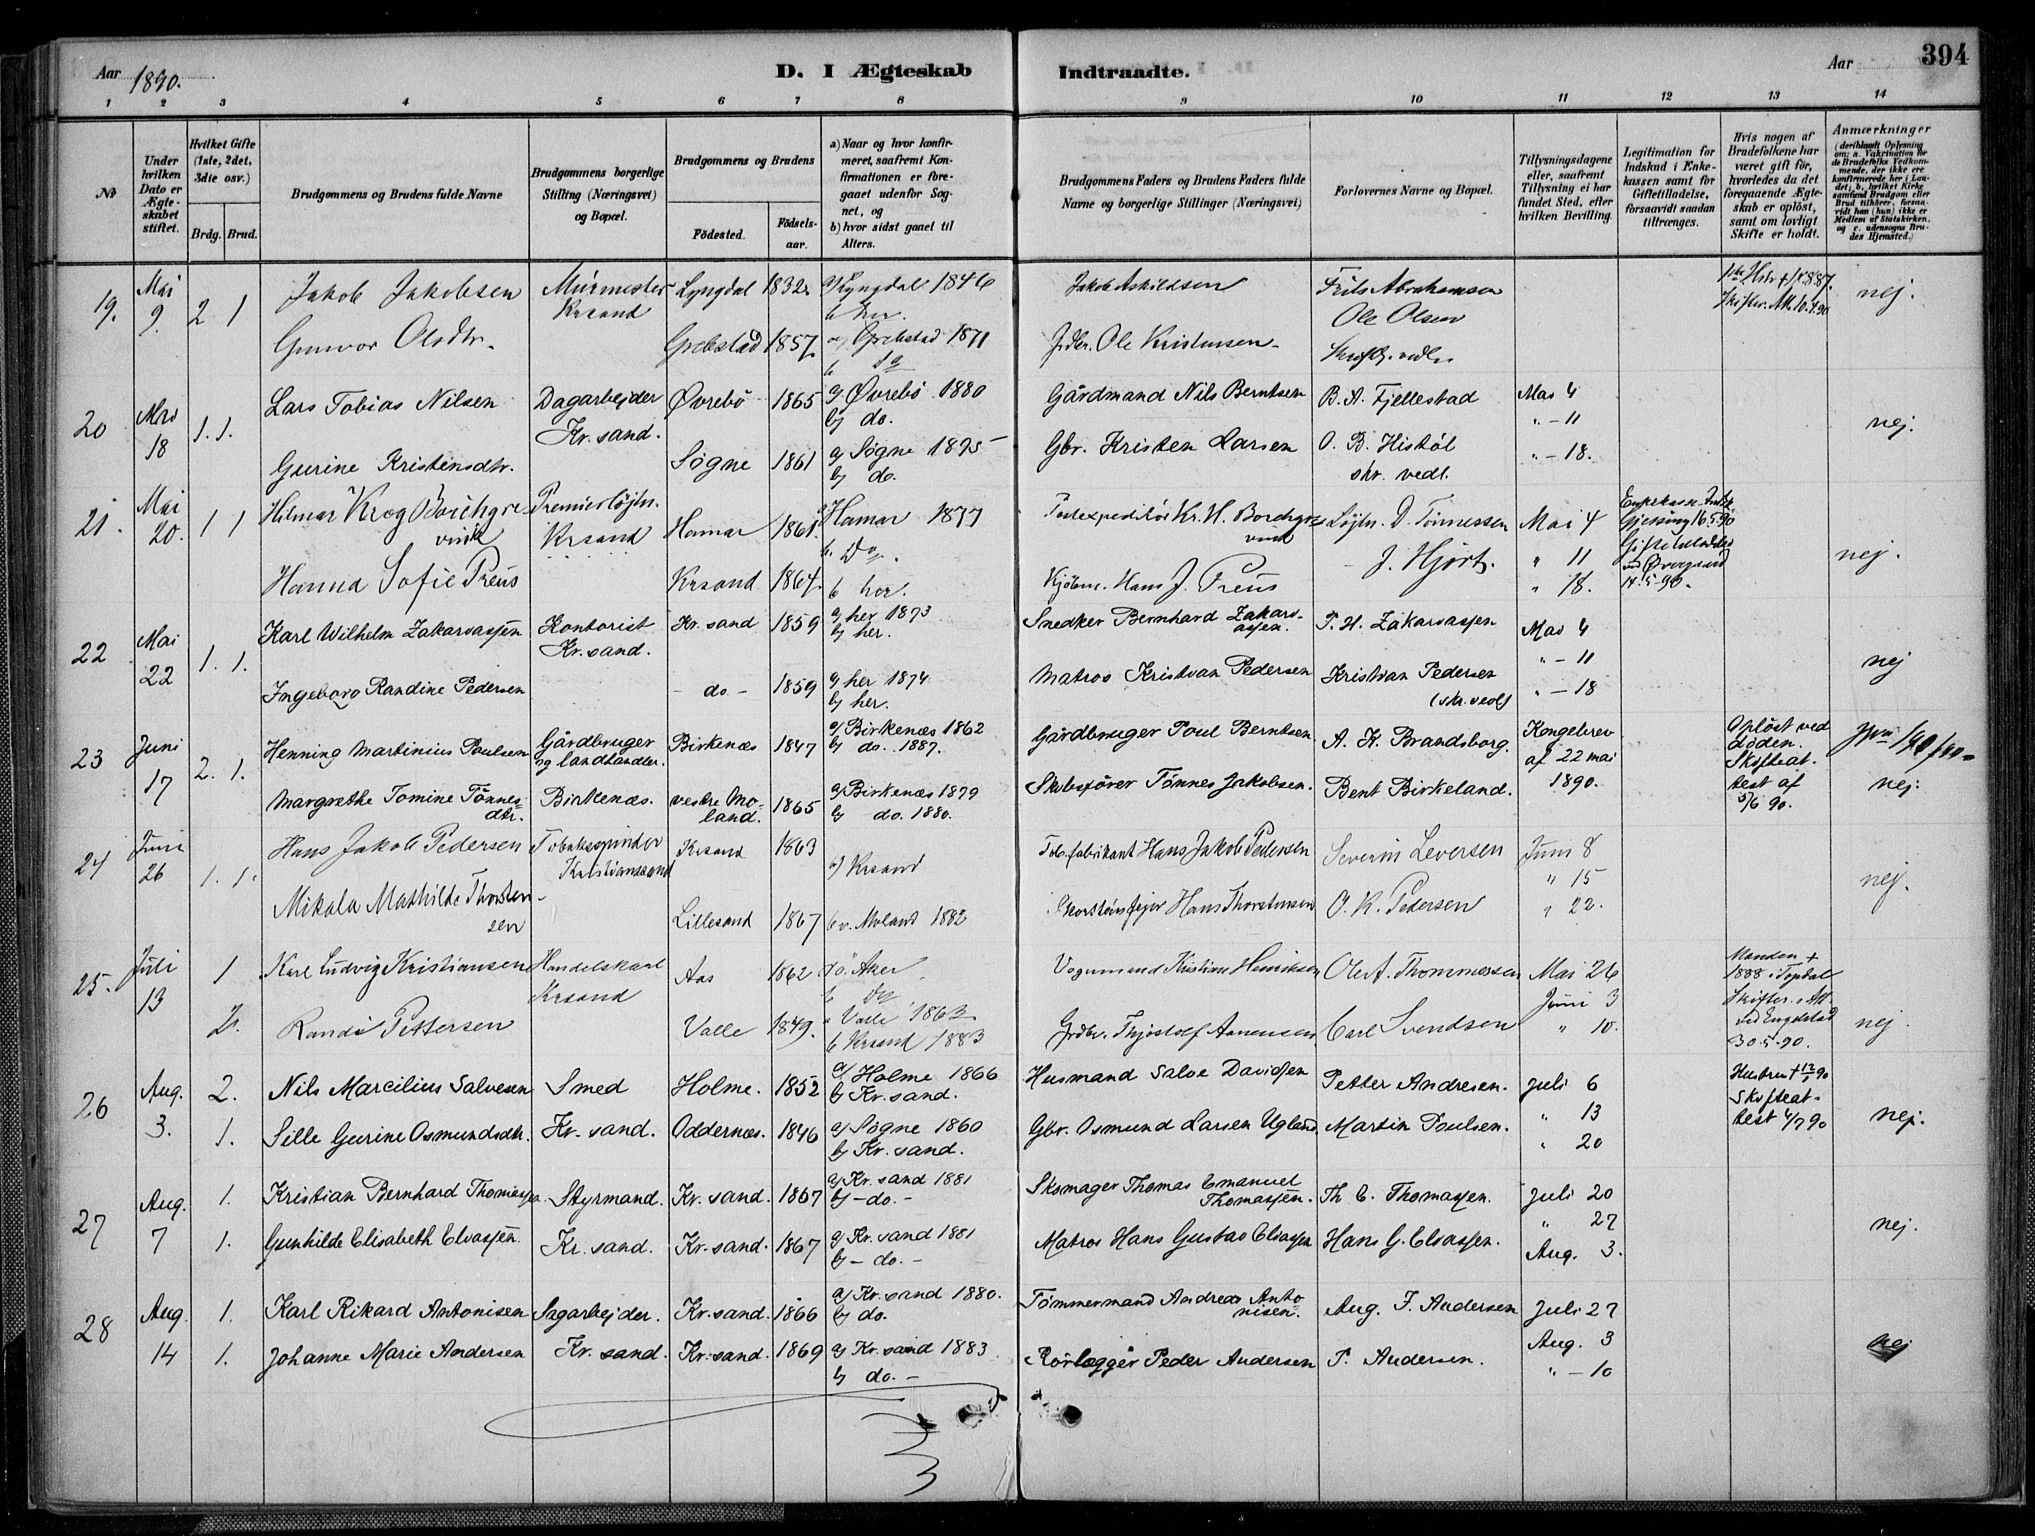 Aar 1890.
D. I Ægteskab
Indtraadte.
Aar
394
1 2 3 4 5 6 7 8 9 10 11 12 13 14
No
Under hvilken Dato er Ægteskabet stiftet.
Hvilket Gifte (1ste, 2det, 3die osv.)
Brdg. Brud.
Brudgommens og Brudens fulde Navne
Brudgommens borgerlige Stilling (Næringsvei) og Bopæl.
Brudgommens og Brudens
Födested.
Födsels-aar.
a) Naar og hvor konfirmeret, saafremt Konfirmationen er foregaaet udenfor Sognet, og
b) hvor sidst gaaet til Alters.
Brudgommens Faders og Brudens Faders fulde Navne og borgerlige Stillinger (Næringsvei)
Forlovernes Navne og Bopæl.
Tillysningsdagene eller, saafremt Tillysning ei har fundet Sted, efter hvilken Bevilling.
Legitimation for Indskud i Enkekassen samt for Giftetilladelse, forsaavidt saadan tiltrænges.
Hvis nogen af Brudefolkene har været gift før, hvorledes da det foregaaende Ægteskab er opløst, samt om lovligt Skifte er holdt.
Anmærkninger (deriblandt Oplysning om: a. Vakcination for de Brudefolks Vedkommende, der ikke ere konfirmerede her i Landet; b. hvilket Kirkesamfund Brudgom eller Brud tilhörer, forsaavidt han (hun) ikke er Medlem af Statskirken, og c. udensogns Brudes Hjemsted.)
19. Mai 9. 2 1
Jakob Jakobsen Murmester Krsand Lyngdal 1832. a/ Lyngdal 1846 b her. Jakob Askildsen Frits Abrahamsen Ole Olsen nej.
Gunvor Olsdtr. Grebstad 1857. a/ Grebstad 1871 b do Grdbr. Ole Kristensen Skriftl. vedl.
20 Mai 18 1. 1.
Lars Tobias Nilsen Dagarbejder Kr.sand. Øvrebö 1865 a/ Øvrebö 1880 b/ do. Gårdmand Nils Berntsen B. A. Fjellestad Mai 4 " - 11 nej.
Gurine Kristensdtr. Søgne 1861 a/ Søgne 1875 b/ do. Gbr. Kristen Larsen O. B. Histöl skr. vedl. " - 18.
21. Mai 20. 1 1
Hilmar Krog Borchgrevink Premierløjtn. Krsand Hamar 1861. Hamar 1877 b. Do. Postexpeditør Kr. H. Borchgrevink Løjtn. D. Tönnessen Mai 4 " 11
Hanna Sofie Preus Krsand 1864. b her. Kjøbm. Hans J. Preus J. Hjort. " 18. nej.
22 Mai 22 1. 1.
Karl Wilhelm Zakariassen Kontorist Kr.sand. Kr.sand 1859 a/ her 1873 b/ her. Snedker Bernhard Zakariassen. P. H. Zakariassen Mai 4 " - 11
Ingeborg Randine Pedersen - do. - 1859 a/ her 1874 b/ her. Matros Kristian Pedersen Kristian Pedersen (skr. vedl) " - 18 nej
23 Juni 17 2. 1.
Henning Martinius Poulsen Gårdbruger og landhandler. Birkenæs 1847 a/ Birkenæs 1862 b/ do. 1887. Gårdbruger Poul Berntsen A. K. Brandsborg. Kongebrev af 22 mai 1890. Opløst ved døden. Skifteattest af 5/6 90.
Margrethe Tomine Tönnesdtr. Birkenæs. vestre Moland. 1865 a/ Birkenæs 1879 b/ do. 1880. Skibsfører Tønnes Jakobsen. Bent Birkeland. nej.
24 Juni 26 1. 1.
Hans Jakob Pedersen Tobakspinder Kristianssand Krsand 1863 a/ Krsand Tob.fabrikant Hans Jakob Pedersen Severin Leversen Juni 8 " 15
Mikala Mathilde Thorstensen Lillesand 1867 b v. Moland 1882 Skorstensfejer Hans Thorstensen O. K. Pedersen " 22. nej.
25. Juli 13 1 2.
Karl Ludvig Kristiansen Handelskarl Krsand Aas 1862 ö. Aker b do Vognmand Kristian Henriksen Ole A. Thommessen Mai 26 Juni 3 Manden + 1888 i Topdal Skifteratt. ved Engelstad 30.5.90.
Randi Pettersen Valle 1849. a Valle 1863 b Krsand 1883 Grdbr. Thjostolf Aanensen Carl Svendsen " 10. nej.
26 Aug. 3. 2. 1.
Nils Marcilius Salvesen Smed Holme. 1852 a/ Holme 1866 b/ Kr.sand. Husmand Salve Davidsen Petter Andresen. Juli 6 " 13 Skifteattest 4/7 90
Sille Gurine Osmundsdtr. Kr.sand. Oddernæs. 1846 a/ Søgne 1860 b/ Kr.sand. Gbr. Osmund Larsen Ugland Martin Poulsen. " 20 nej.
27 Aug. 7 1. 1.
Kristian Bernhard Thomassen Styrmand. Kr.sand. 1867 a/ Kr.sand 1881 b/ - do. - Skomager Thomas Emanuel Thomassen. Th E. Thomassen. Juli 20 " 27
Gunhilde Elisabeth Eliassen Kr.sand. Kr.sand. 1867 a/ Kr.sand 1881 b/ - do. - Matros Hans Gustav Eliassen Hans G. Eliassen. Aug. 3. nej.
28 Aug. 14 1. 1.
Karl Rikard Antonisen Sagarbejder. Kr.sand. 1866 a/ Kr.sand 1880. b/ do. Tømmermand Andreas Antonisen. Aug. T. Andersen Juli 27 Aug. 3
Johanne Marie Andersen Kr.sand. Kr.sand. 1869 a/ Kr.sand 1883 b/ do. - Rørlægger Peder Andersen P. Andersen. " - 10 nej